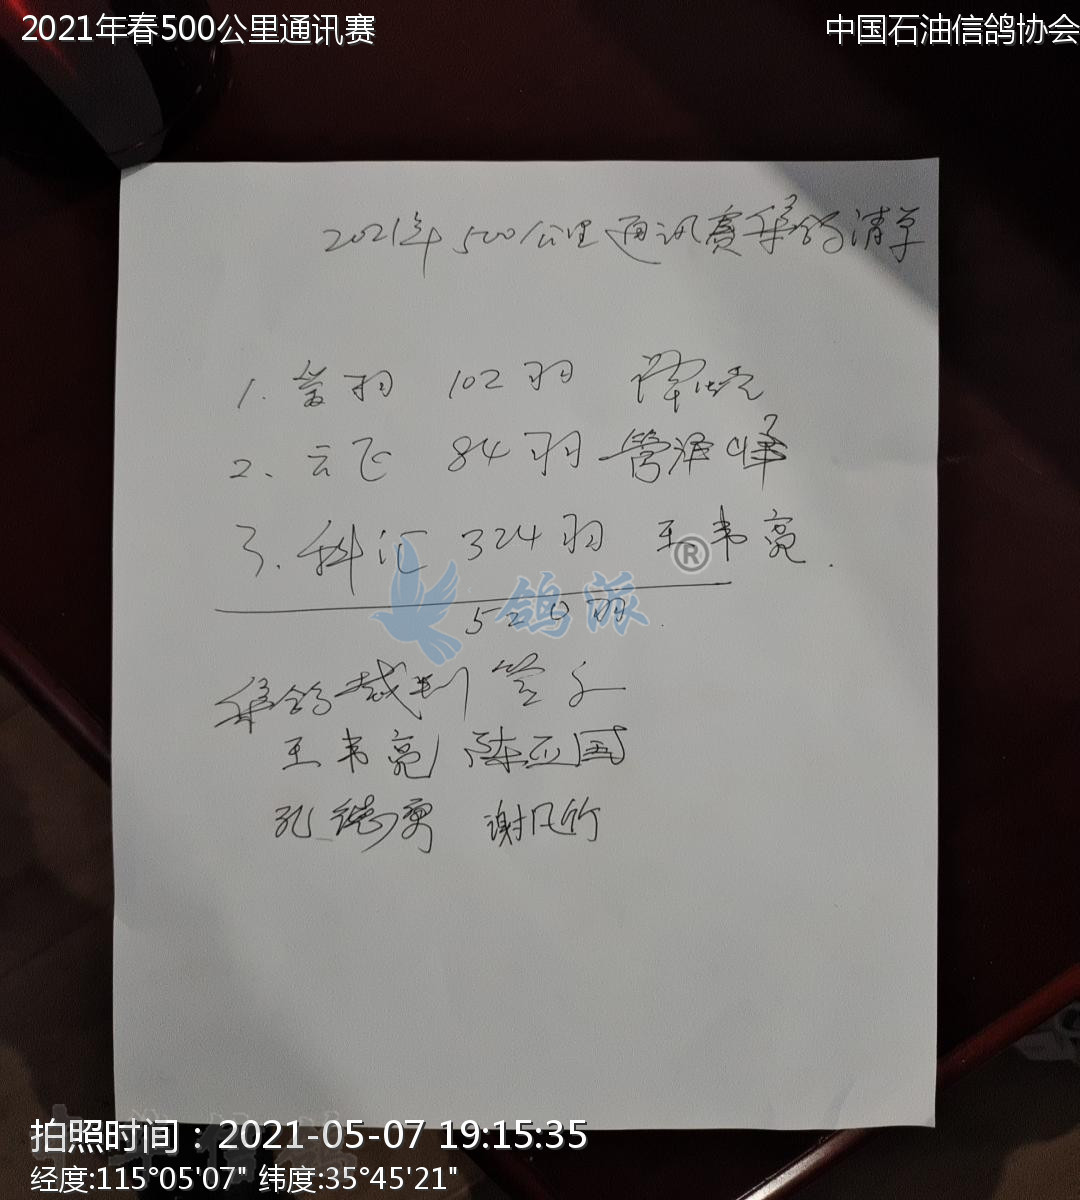 2021年春500公里通讯赛
中国石油信鸽协会
2021年500公里通讯赛集鸽清单
1. 翁羽 102羽
2. 云飞 84羽 管泽峰
3. 科汇 324羽 王韦亮.
鸽派®
520羽.
集鸽裁判
王韦亮 陈亚国
孔德勇 谢凡竹
拍照时间：2021-05-07 19:15:35
经度:115°05'07" 纬度:35°45'21"